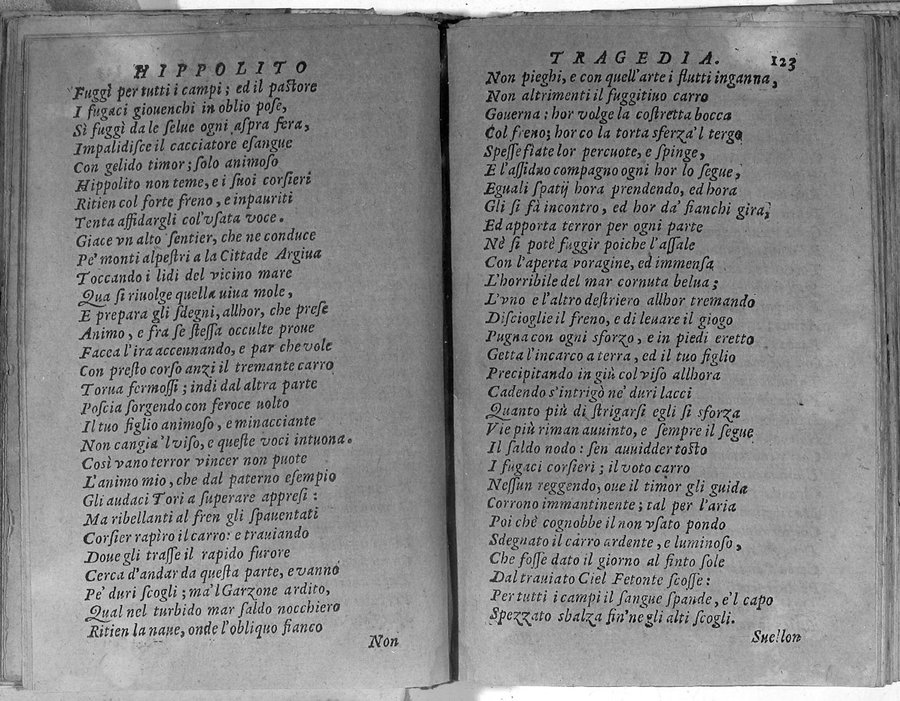 HIPPOLITO
Fuggì per tutti i campi; ed il paſtore
I fugaci giouenchi in oblio poſe,
Sì fuggì da le ſelue ogni aſpra fera,
Impalidiſce il cacciatore eſangue
Con gelido timor; ſolo animoſo
Hippolito non teme, e i ſuoi corſieri
Ritien col forte freno, e inpauriti
Tenta affidargli col'vſata voce.
Giace vn alto ſentier, che ne conduce
Pe' monti alpeſtri a la Cittade Argiua
Toccando i lidi del vicino mare
Qua ſi riuolge quella uiua mole,
E prepara gli ſdegni, allhor, che preſe
Animo, e fra ſe ſteſſa occulte proue
Facea l'ira accennando, e par che vole
Con preſto corſo anzi il tremante carro
Torua fermoſſi; indi dal altra parte
Poſcia ſorgendo con feroce uolto
Il tuo figlio animoſo, e minacciante
Non cangia'l viſo, e queſte voci intuona.
Così vano terror vincer non puote
L'animo mio, che dal paterno eſempio
Gli audaci Tori a ſuperare appreſi:
Ma ribellanti al fren gli ſpauentati
Corſier rapìro il carro: e trauiando
Doue gli traſſe il rapido furore
Cerca d'andar da queſta parte, e vanno
Pe' duri ſcogli; ma'l Garzone ardito,
Qual nel turbido mar ſaldo nocchiero
Ritien la naue, onde l'obliquo fianco
Non
TRAGEDIA. 123
Non pieghi, e con quell'arte i flutti inganna,
Non altrimenti il fuggitiuo carro
Gouerna: hor volge la coſtretta bocca
Col freno; hor co la torta sferza'l tergo
Speſſe fiate lor percuote, e ſpinge,
E l'aſſiduo compagno ogni hor lo ſegue,
Eguali ſpatij hora prendendo, ed hora
Gli ſi fà incontro, ed hor da' fianchi gira,
Ed apporta terror per ogni parte
Nè ſi potè fuggir poiche l'aſſale
Con l'aperta voragine, ed immenſa
L'horribile del mar cornuta belua;
L'vno e l'altro deſtriero allhor tremando
Diſcioglie il freno, e di leuare il giogo
Pugna con ogni sforzo, e in piedi eretto
Getta l'incarco a terra, ed il tuo figlio
Precipitando in giù col viſo allhora
Cadendo s'intrigò ne' duri lacci
Quanto più di ſtrigarſi egli ſi sforza
Vie più riman auuinto, e ſempre il ſegue
Il ſaldo nodo: ſen auuidder toſto
I fugaci corſieri; il voto carro
Neſſun reggendo, oue il timor gli guida
Corrono immantinente; tal per l'aria
Poi chè cognobbe il non vſato pondo
Sdegnato il carro ardente, e luminoſo,
Che foſſe dato il giorno al finto ſole
Dal trauiato Ciel Fetonte ſcoſſe:
Per tutti i campi il ſangue ſpande, e'l capo
Spezzato sbalza fin' ne gli alti ſcogli.
Suellon